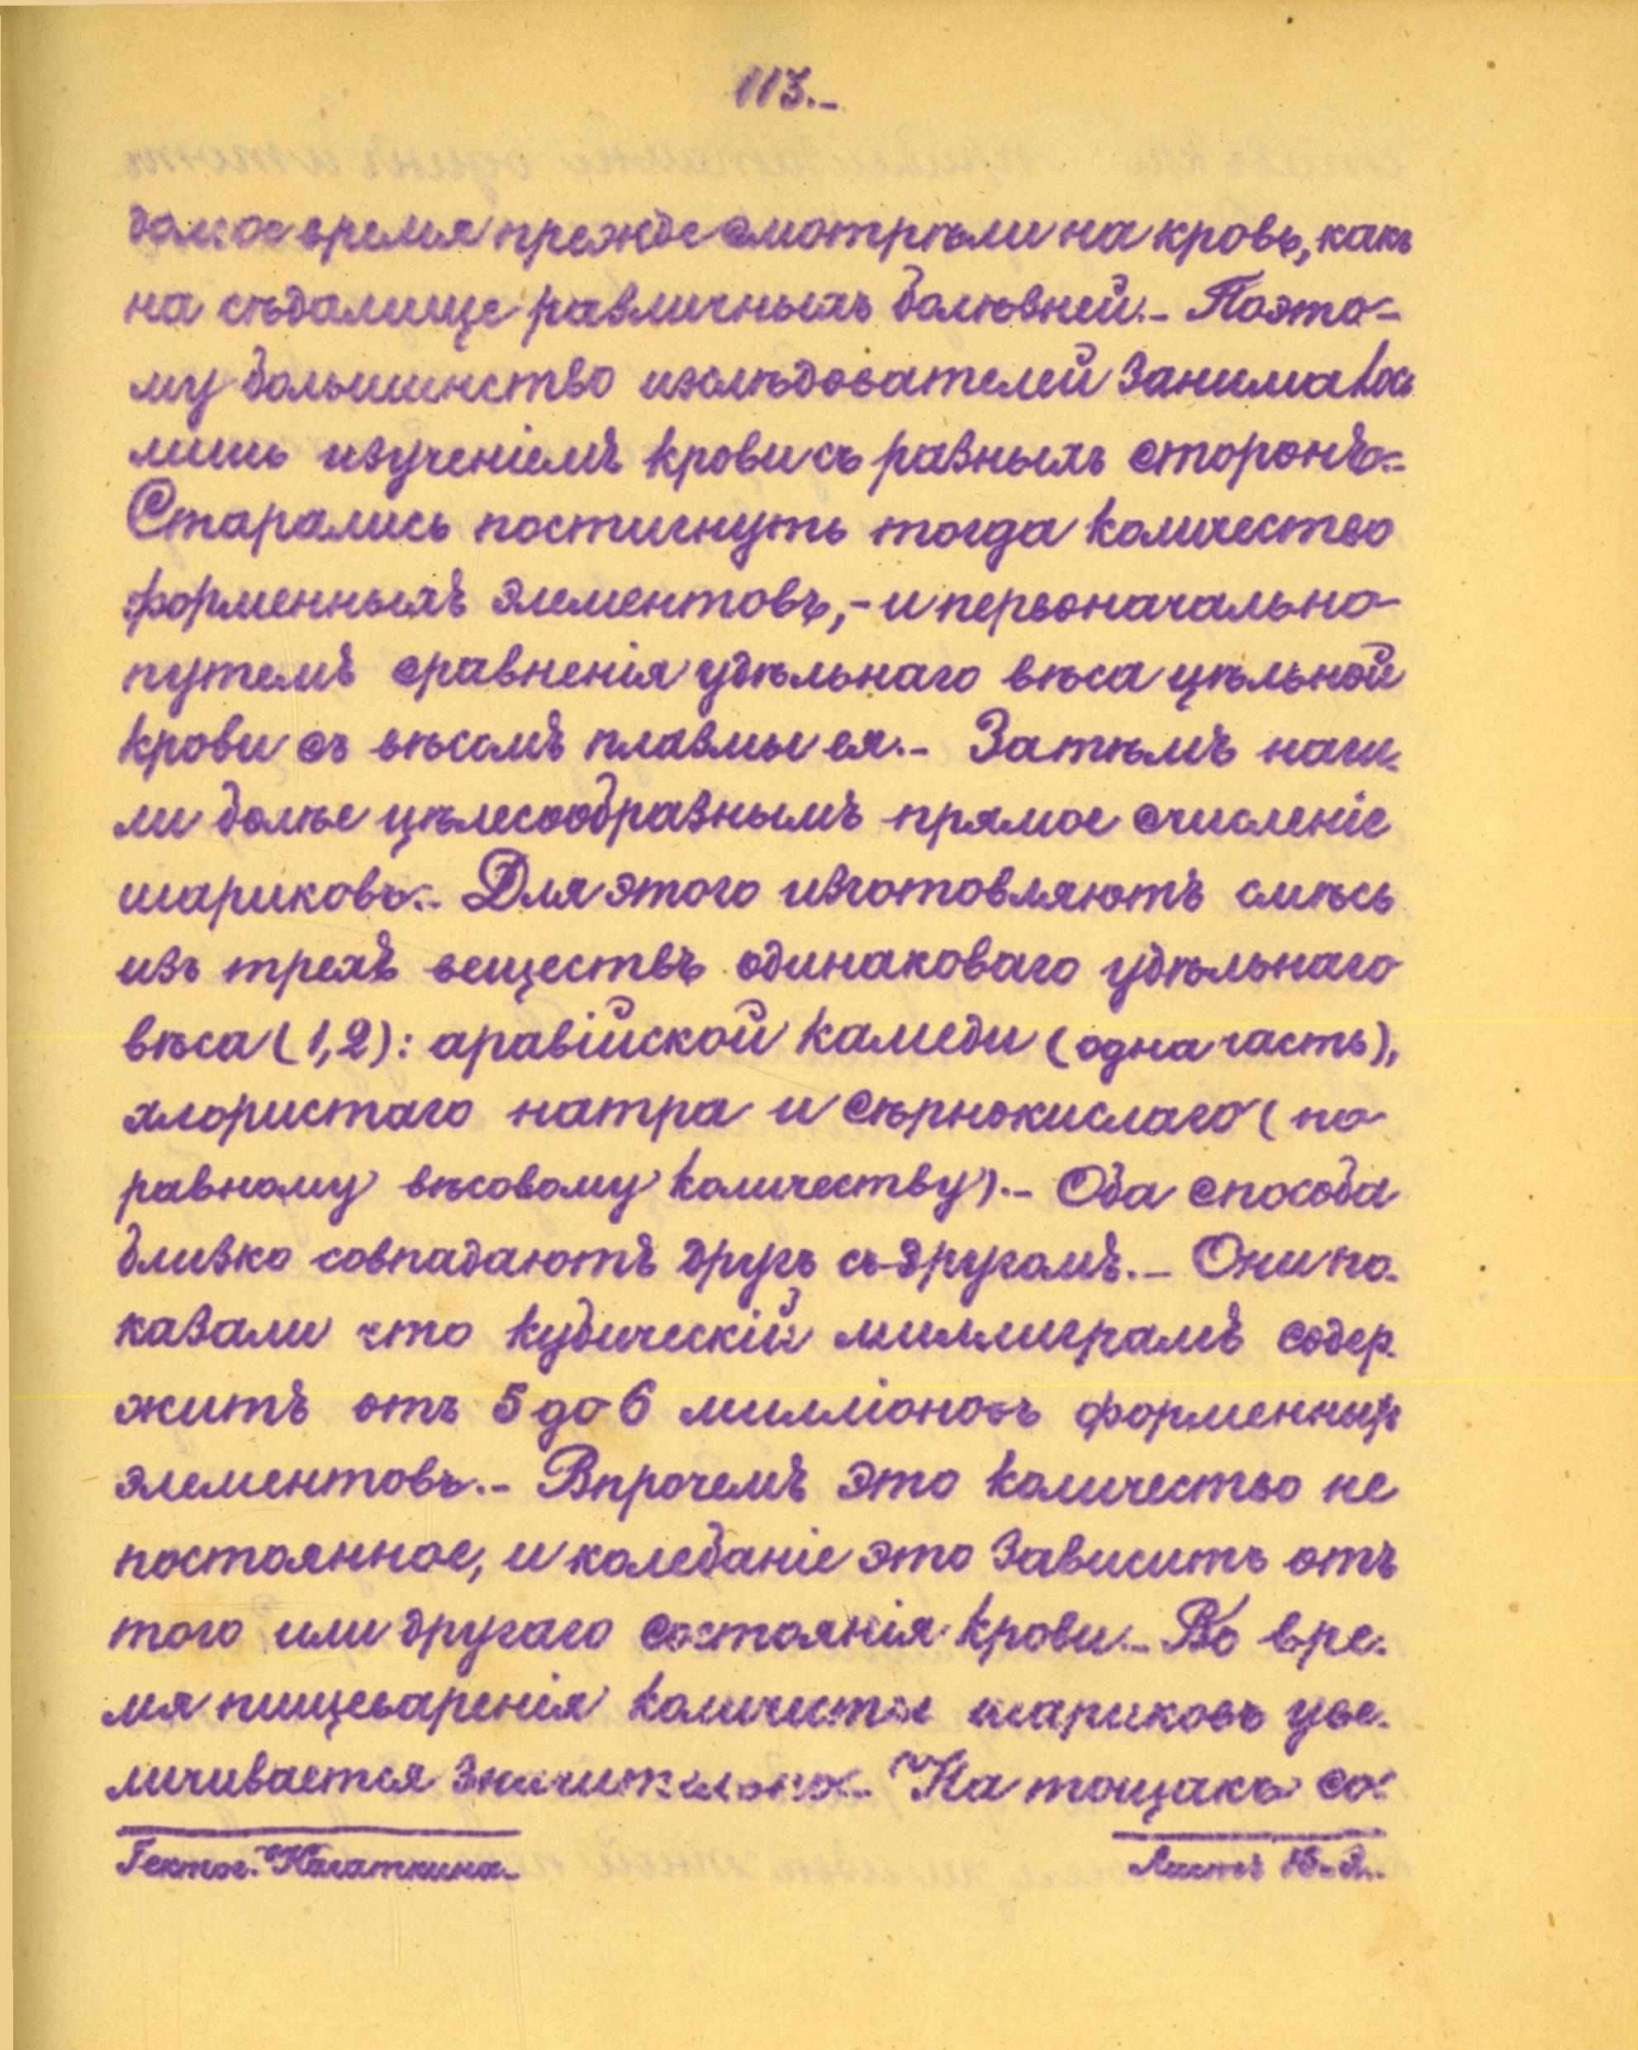 113.-
долгое время прежде смотрѣли на кровь, какъ
на сѣдалище различныхъ болѣзней.- Поэто-
му большинство изслѣдователей занималось
лишь изученіемъ крови съ разныхъ сторонъ.-
Старались постигнуть тогда количество
форменныхъ элементовъ,- и первоначально
путемъ сравненія удѣльнаго вѣса цѣльной
крови съ вѣсомъ плазмы ея.- Затѣмъ наш-
ли болѣе цѣлесообразнымъ прямое счисленіе
шариковъ.- Для этого изготовляютъ смѣсь
изъ трехъ веществъ одинаковаго удѣльнаго
вѣса (1,2): аравійской камеди (одна часть),
хлористаго натра и сѣрнокислаго (по
равному вѣсовому количеству).- Оба способа
близко совпадаютъ другъ съ другомъ.- Они по-
казали что кубическій миллиграмъ содер-
житъ отъ 5 до 6 милліоновъ форменныхъ
элементовъ.- Впрочемъ это количество не
постоянное, и колебаніе это зависитъ отъ
того или другаго состоянія крови.- Во вре-
мя пищеваренія количество шариковъ уве-
личивается значительно.- На тощакъ со-
Гектог. Касаткина.
Листъ 15-й.